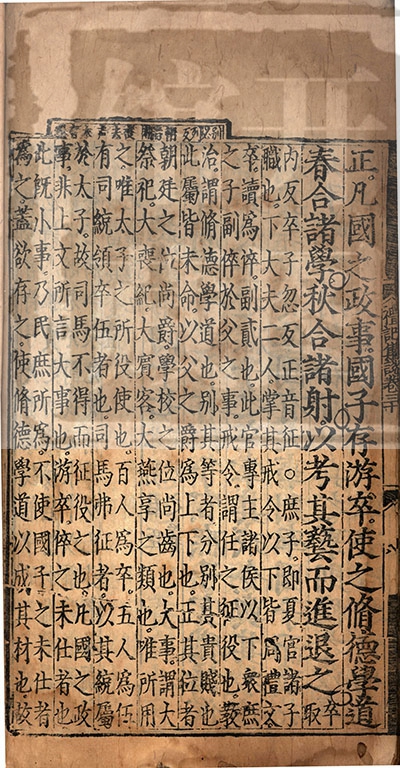 正凡國之政事國子存游卒使之脩德學道
春合諸學秋合諸射以考其藝而進退之卒取
內反卒子忽反正音征○庶子即夏官諸子
職也下大夫二人掌其戒令以下皆周禮文
卒讀為倅副貳也此官專主諸侯以下衆庶
之子副倅於父之事戒令謂任之征役也教
治謂脩德學道也別其等者分別其貴賤也
此屬皆未命以父之爵為上下也正其位者
朝廷之位尚爵學校之位尚齒也大事謂大
祭祀大喪紀大賓客大燕享之類也唯所用
之唯太子之所役使也百人為卒五人為伍
有司統領卒伍者也司馬弗征者以其統屬
於太子故司馬不得而征役之也凡國之政
事非上文所言大事也游卒倅之未仕者也
此既小事乃民庶所為不使國子之未仕者
為之蓋欲存之使脩德學道以成其材也故